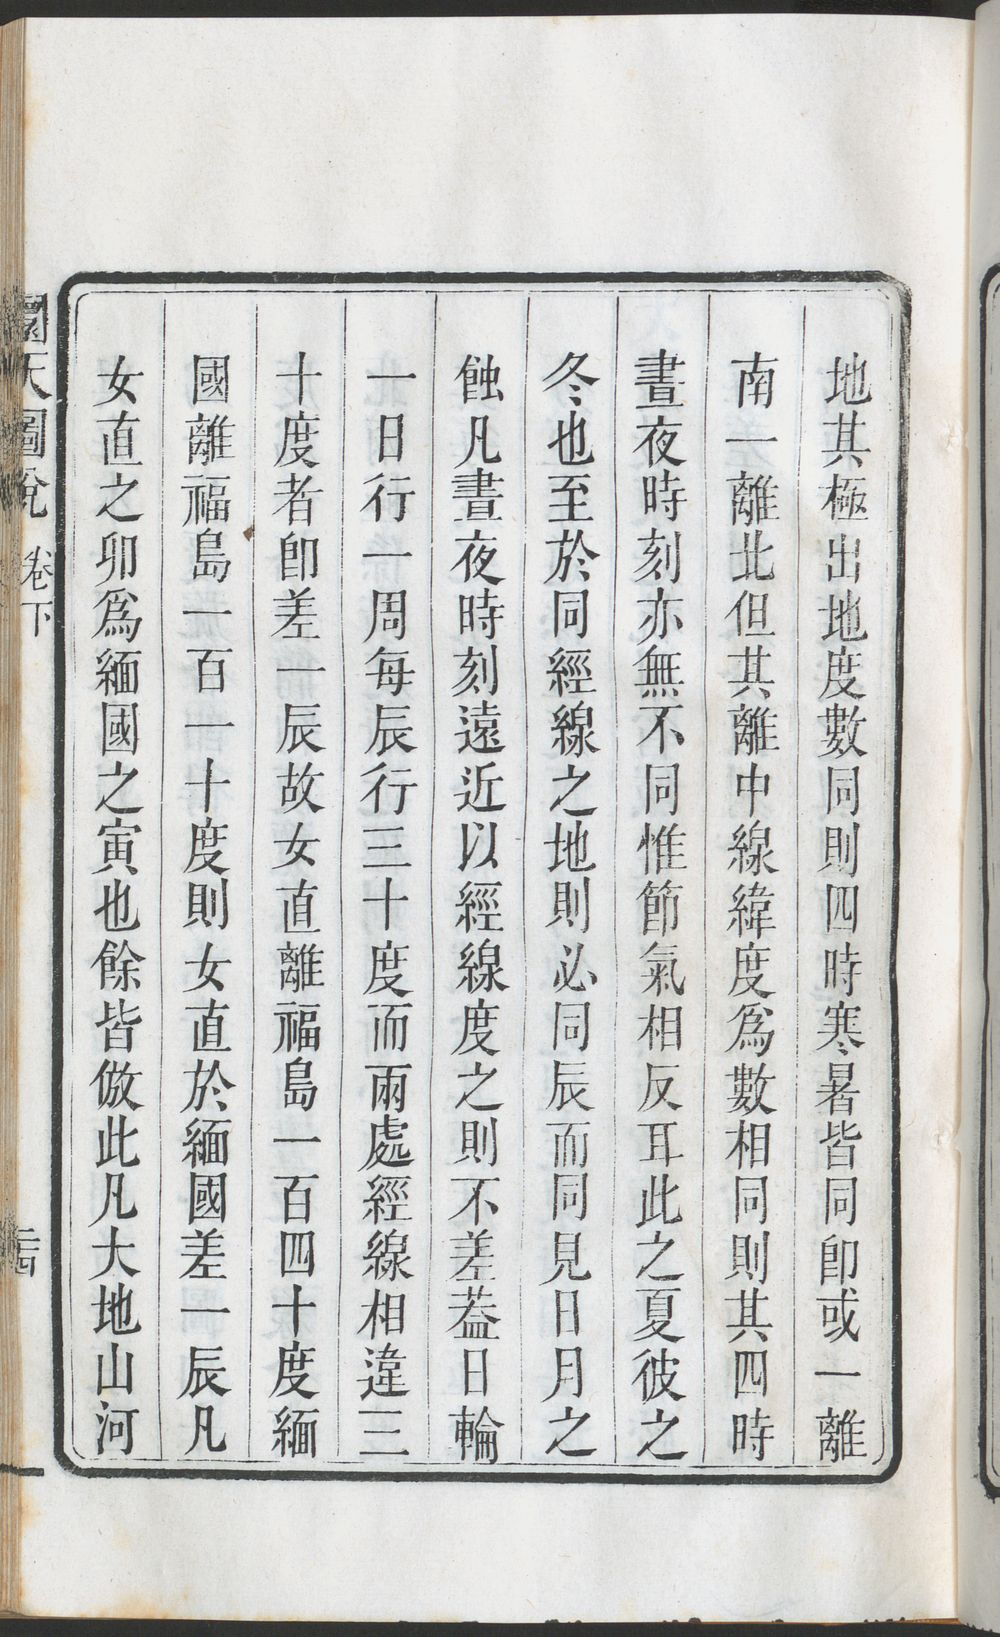 地其極出地度數同則四時寒暑皆同卽或一離
南一離北但其離中線緯度爲數相同則其四時
晝夜時刻亦無不同惟節氣相反耳此之夏彼之
冬也至於同經線之地則必同辰而同見日月之
蝕凡晝夜時刻遠近以經線度之則不差葢日輪
一日行一周每辰行三十度而兩處經線相違三
十度者卽差一辰故女直離福島一百四十度緬
國離福島一百一十度則女直於緬國差一辰凡
女直之卯爲緬國之寅也餘皆倣此凡大地山河
圜天圖說 卷下 二四